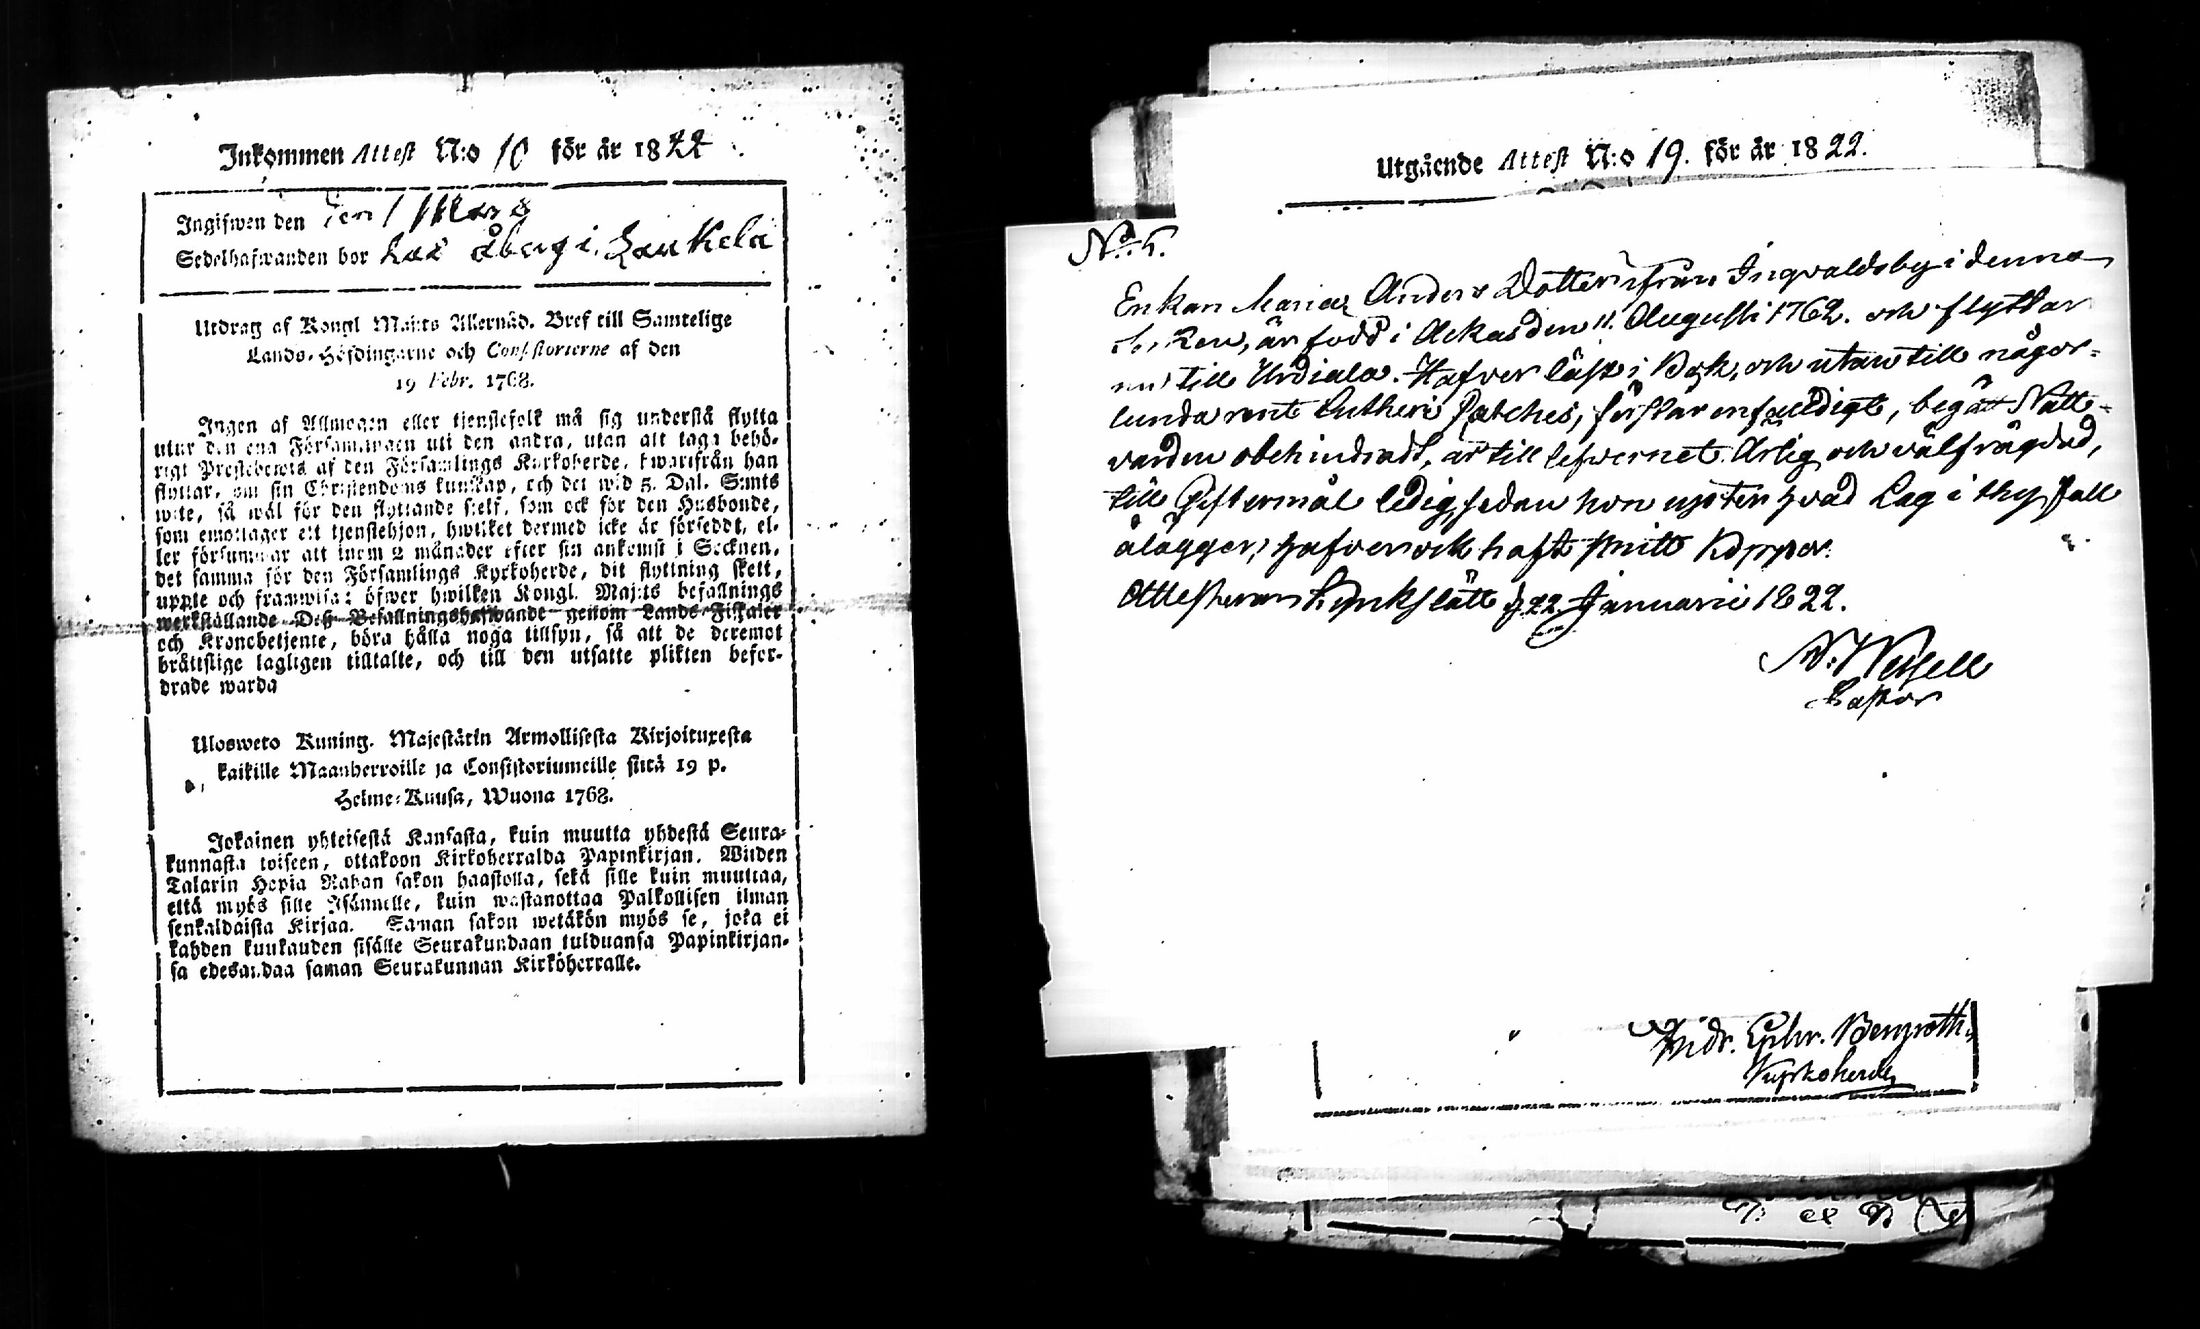 Inkommen Attest N:o 10 för år 1822
Ingifwen den den 1 Mars
Sedelhafwanden bor hos Åberg i Laukela
Utdrag af Kongl Maj:ts Allernåd. Bref till Samtelige
Lands-Höfdingarne och Consistorierne af den
19 Febr. 1768.
Ingen af Allmogen eller tjenstefolk må sig understå flytta
utur den ena Församlingen uti den andra, utan att taga behö-
rigt Prestebewis af den Församlings Kyrkoherde, hwarifrån han
flyttar, om sin Christendoms kunskap, och det wid 5. Dal. S:mts
wite, så wäl för den flyttande sielf, som ock för den Husbonde,
som emottager ett tjenstehjon, hwilket dermed icke är förseddt, el-
ler försummar att inom 2 månader efter sin ankomst i Socknen,
det samma för den Församlings Kyrkoherde, dit flyttning skett,
upple och framwisa: öfwer hwilken Kongl. Maj:ts befallnings
werkställande Deß Befallningshafwande genom Lands-Fiskaler
och Kronobetjente, böra hålla noga tillsyn, så att de deremot
bråttslige lagligen tilltalte, och till den utsatte plikten befor-
drade warda
Ulosweto Kuning. Majestätin Armollisesta Kirjoituxesta
kaikille Maanherroille ja Consistoriumeille siitä 19 p.
Helme-Kuusa, Wuona 1768.
Jokainen yhteisestä Kansasta, kuin muutta yhdestä Seura-
kunnasta toiseen, ottakoon Kirkoherralda Papinkirjan. Wiiden
Talarin Hopia Rahan sakon haastolla, sekä sille kuin muuttaa,
että myös sille Isännelle, kuin wastanottaa Palkollisen ilman
senkaldaista Kirjaa. Saman sakon wetäkön myös se, joka ei
kahden kuukauden sisälle Seurakundaan tulduansa Papinkirjan-
sa edesandaa saman Seurakunnan Kirkoherralle.
Utgående Attest N:o 19. för år 1822.
No. 5.
Enkan Maria Anders Dotter ifrån Ingvaldsby i denna
Socken, är född i Ackas den 11. Augusti 1762. och flyttar
nu till Urdiala. Hafver läst i Bok, och utan till någor-
lunda rent Lutheri Cateches, förstår enfaldigt, begått Natt-
varden obehindradt, är till lefvernet Ärlig och välfrägdad,
till Giftermål ledig, sedan hon upfyller hvad Lag i thy fall
ålägger, hafver ock haft smitt Koppor.
Attesteras Kyrkslätt d. 22 Januarii 1822.
Pastor
Ephr.
Kyrkoherde